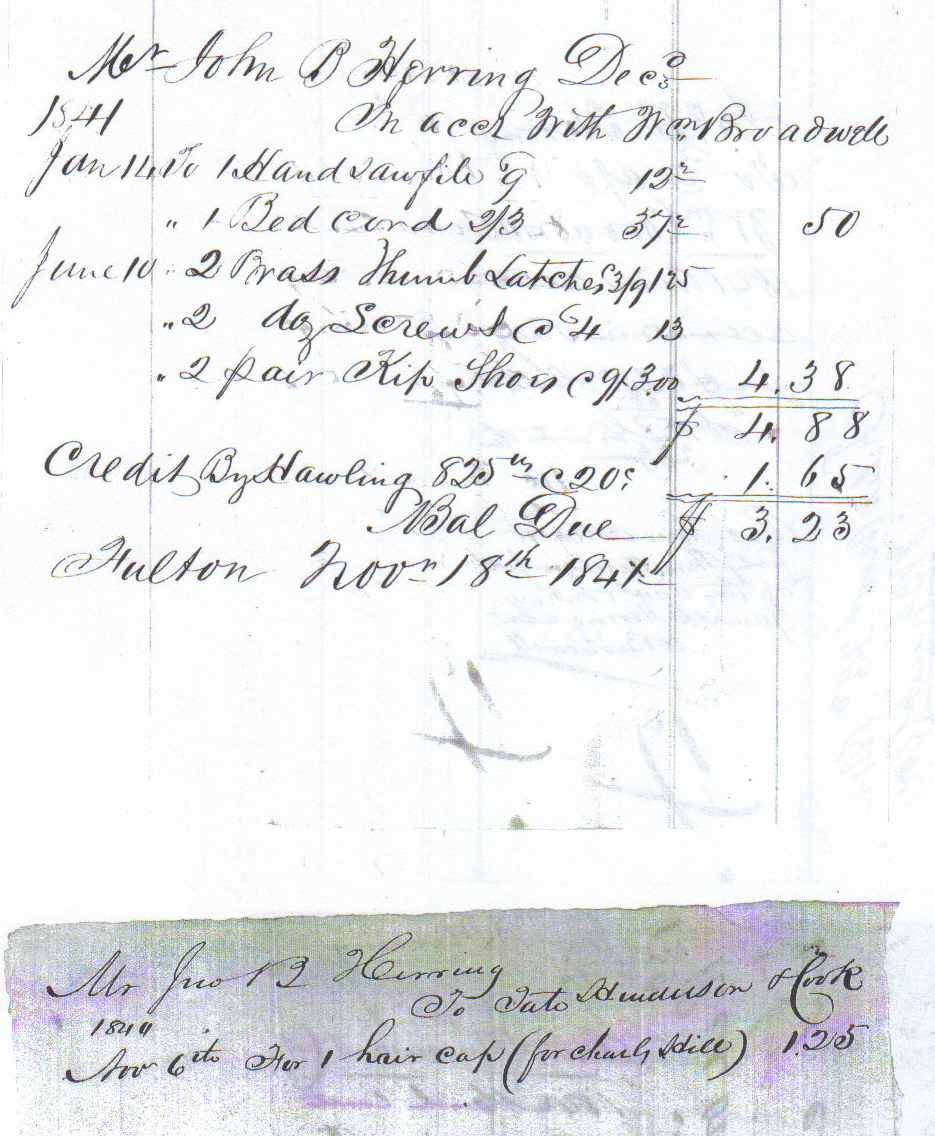 Mr John B Herring Decd
1841 In acct With Wm Broadwell
Jan 14 To 1 Hand saw file 9 12½
" 1 Bed cord 2/3 37½ 50
June 10 " 2 Brass Thumb Latches 3/9 125
" 2 doz Screws @ 4 13
" 2 pair Kip Shoes @ 9/ 3.00 4.38
$ 4.88
Credit By Hawling 825 @ 20c 1.65
Bal Due $ 3.23
Fulton Novr 18th 1841
Mr Jno B Herring
To Tate Henderson & Cook
1840
Nov 6th For 1 hair cap (for Charls Hill) 1.25